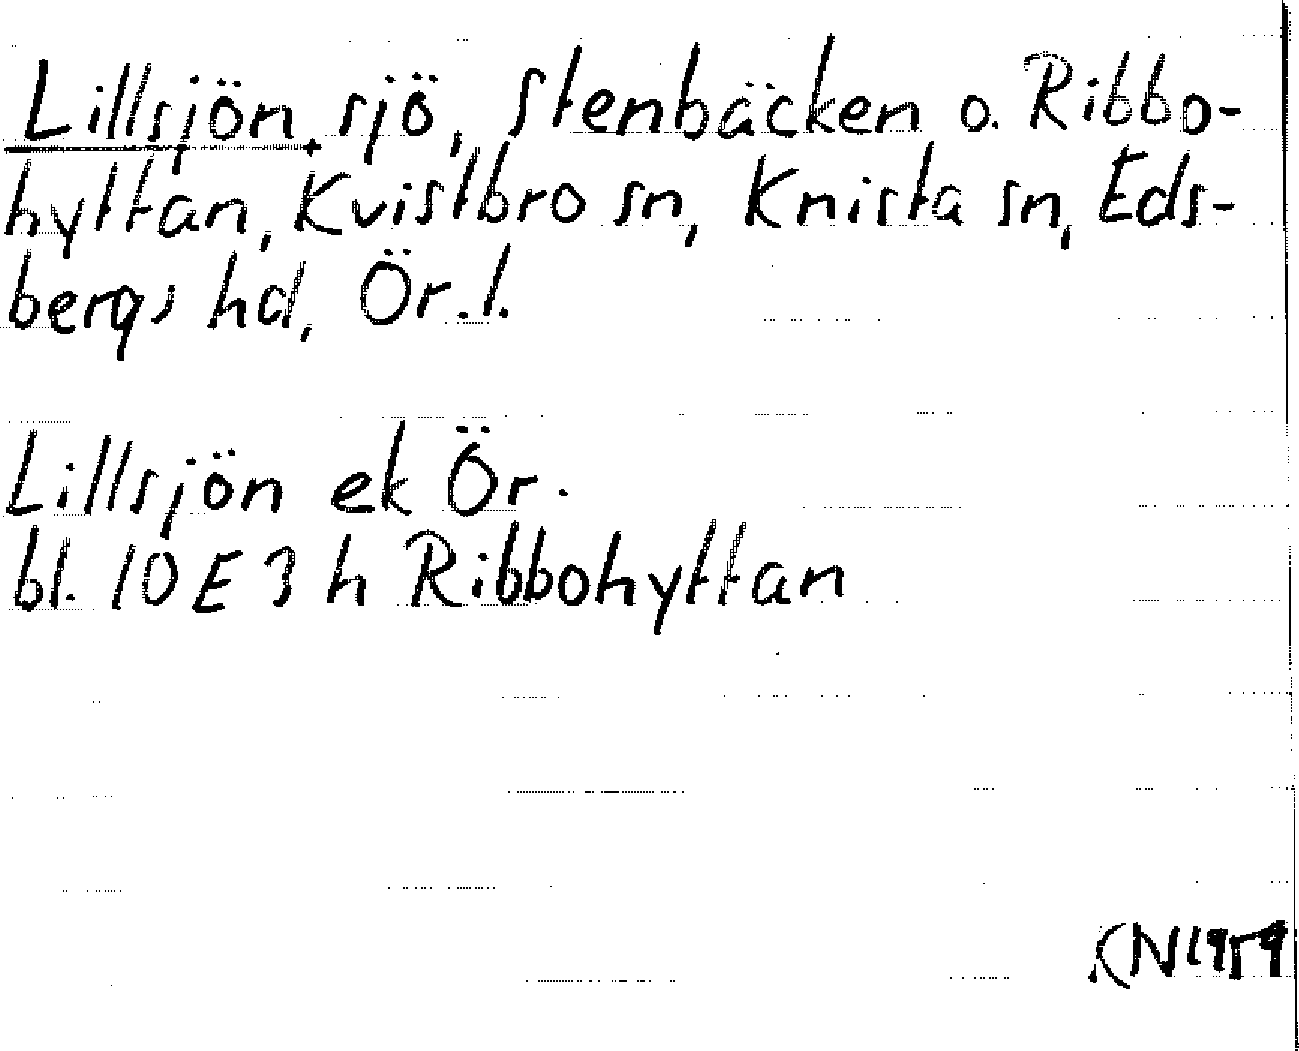 Lillsjön, sjö, Stenbäcken o. Ribbo-
hyttan, Kvistbro sn, Knista sn, Eds-
bergs hd, Ör. l.
Lillsjön ek Ör.
bl. 10 E 3 h Ribbohyttan
1959